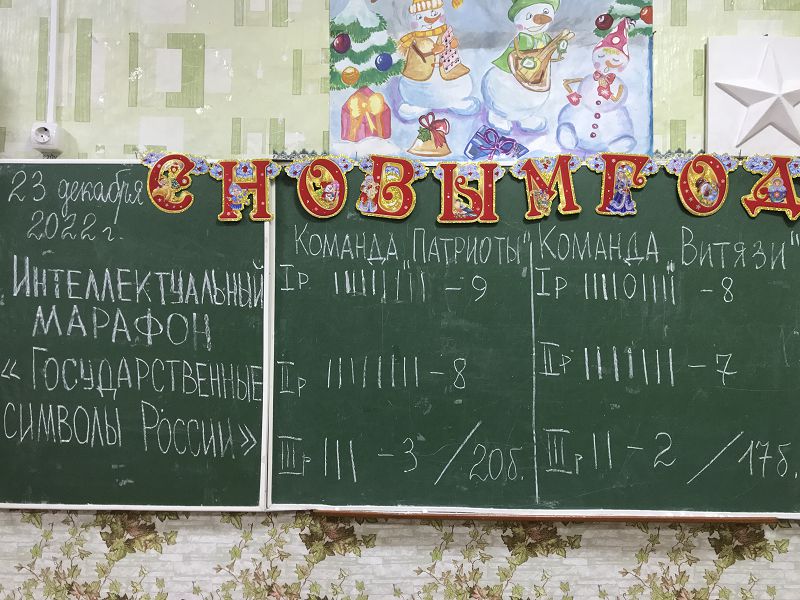 С НОВЫМ ГОД
23 декабря
2022 г.
ИНТЕЛЛЕКТУАЛЬНЫЙ
МАРАФОН
«ГОСУДАРСТВЕННЫЕ
СИМВОЛЫ РОССИИ»
КОМАНДА „ПАТРИОТЫ"
I р. ||||||||| – 9
II р ||||||||  – 8
III р ||| – 3 / 20 б.
КОМАНДА „ВИТЯЗИ"
I р ||||0|||| – 8
II р ||||||| – 7
III р || – 2 / 17 б.